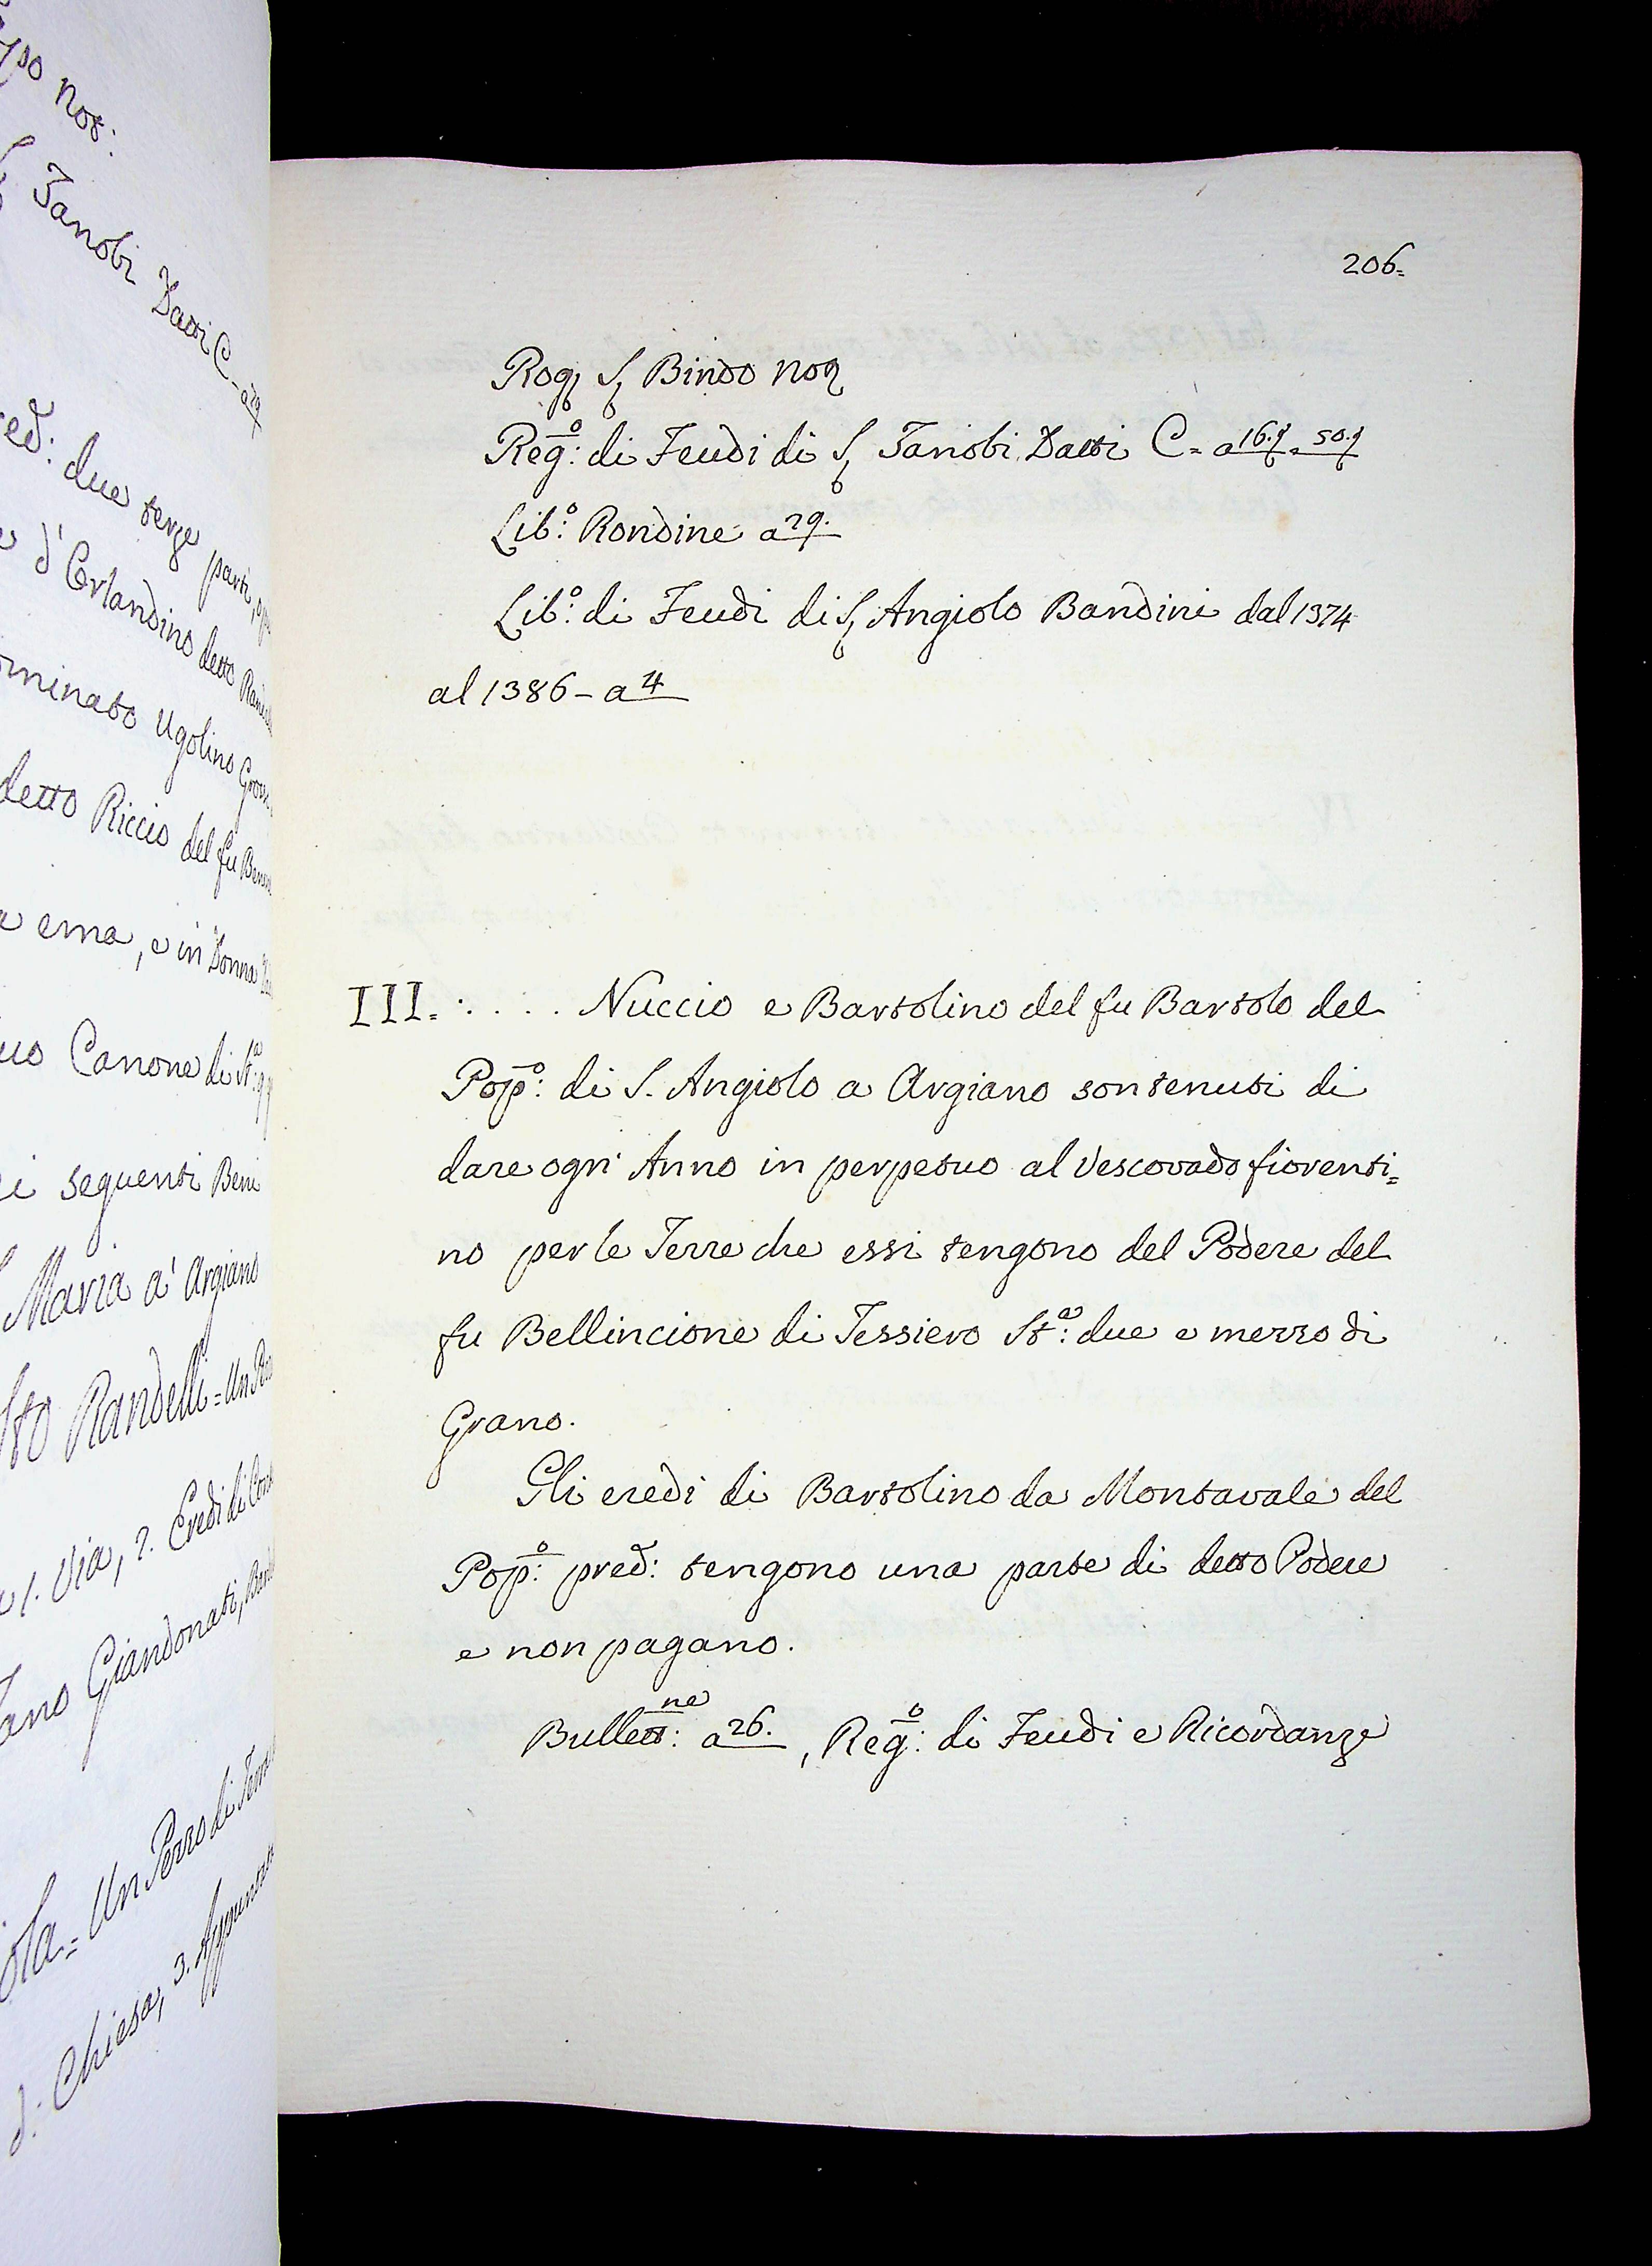 po Not:
Zanobi Datti C - a 29
red: due terze parti,
e d'Orlandino detto
ominato Ugolino
detto Riccio del fu
a ema, e in Donna
uo Canone di St:a
ei seguenti Beni
S. Maria a' Argiano
sto Randelli = Un
a 1. Via, 2. Eredi di
ano Giandonati,
ola = Un Pezzo di Terra
d: Chiesa, 3. Appuntato
206=
Rog. S. Bindo Not
Reg:o di Feudi di S. Zanobi Datti C= a 16.t = 50.t
Lib:o Rondine a 29.
Lib:o di Feudi di S. Angiolo Bandini dal 1374
al 1386 - a 4
III. : . . . . Nuccio e Bartolino del fu Bartolo del
Pop:o di S. Angiolo a Argiano son tenuti di
dare ogni Anno in perpetuo al Vescovado fiorenti=
no per le Terre che essi tengono del Podere del
fu Bellincione di Tessiero St:a due e mezzo di
Grano.
Gli eredi di Bartolino da Montavale del
Pop:o pred: tengono una parte di detto Podere
e non pagano.
Bullett:ne a 26. , Reg:o di Feudi e Ricordanze